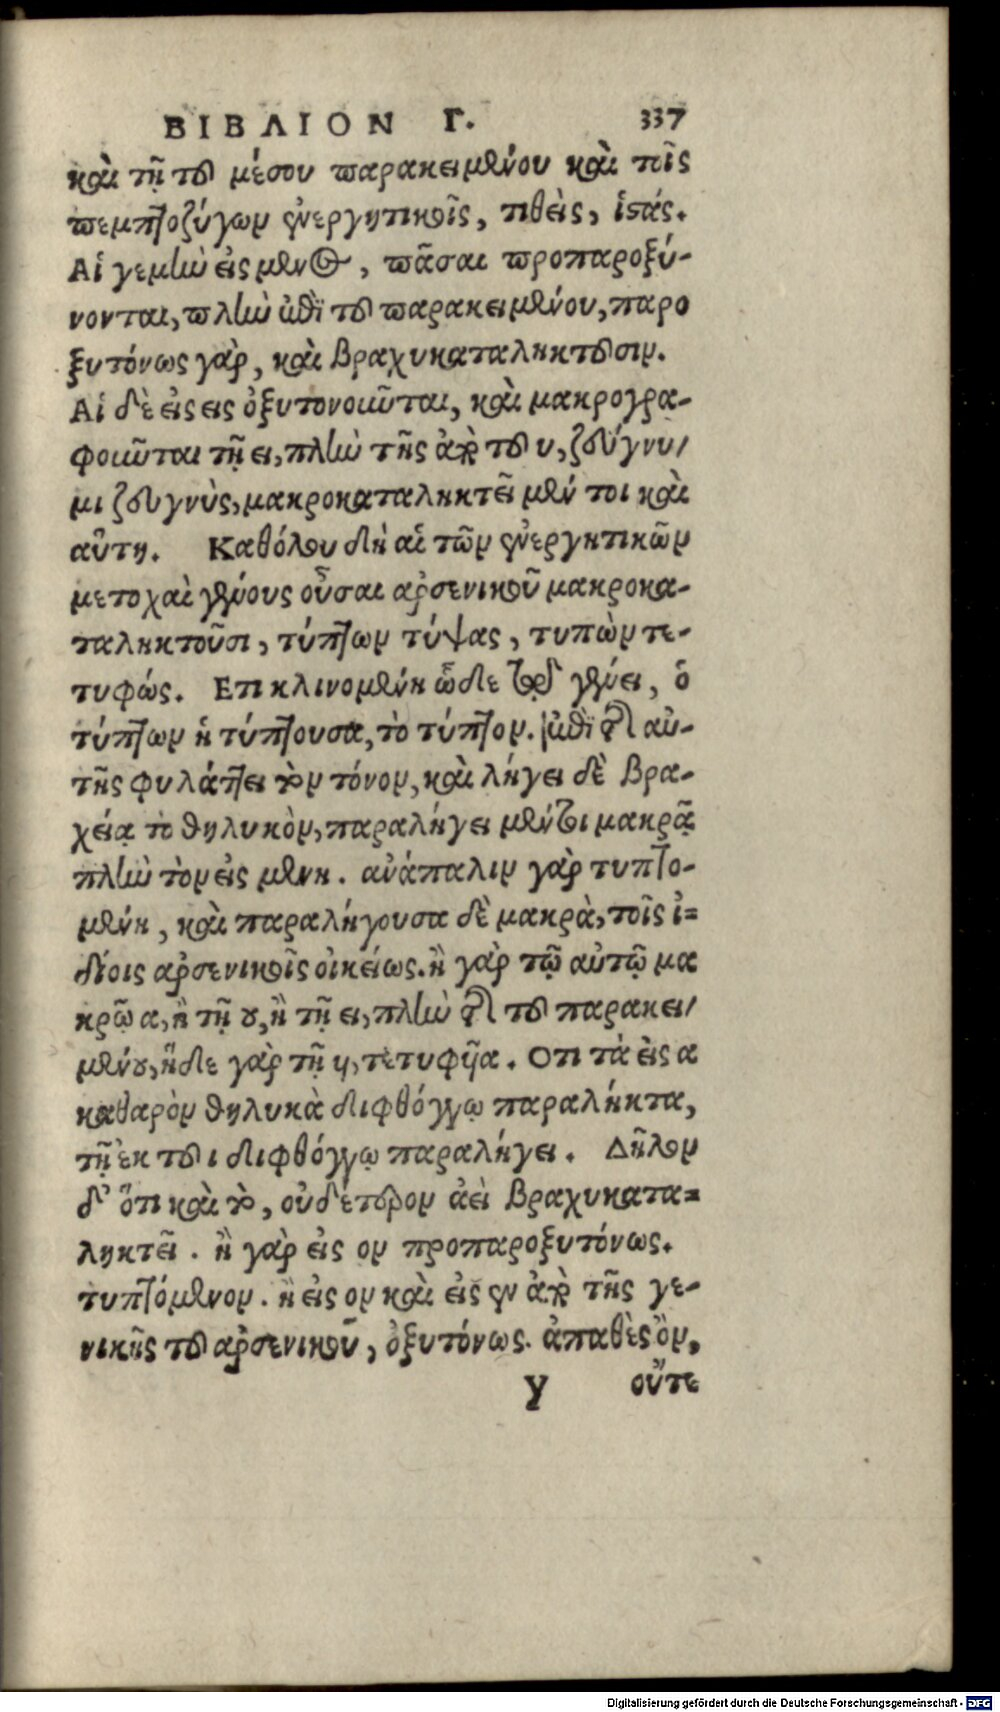 ΒΙΒΛΙΟΝ Γ. 337
καὶ τῇ τοῦ μέσου παρακειμένου καὶ τοῖς
πεμπτοζύγων ἐνεργητικοῖς, τιθεὶς, ἱστάς.
Αἱ γεμὴν εἰς μενος, πᾶσαι προπαροξύ-
νονται, πλὴν ἐπὶ τοῦ παρακειμένου, παρο
ξυτόνως γὰρ, καὶ βραχυκαταληκτοῦσιν.
Αἱ δὲ εἰς εις ὀξυτονοῦνται, καὶ μακρογρα-
φοῦνται τῇ ει, πλὴν τῆς ἀπὸ τοῦ υ, ζεύγνυ/
μι ζευγνὺς, μακροκαταληκτεῖ μέν τοι καὶ
αὕτη. Καθόλου δὴ αἱ τῶν ἐνεργητικῶν
μετοχαὶ γένους οὖσαι ἀρσενικοῦ μακροκα-
ταληκτοῦσι, τύπτων τύψας, τυπὼν τε-
τυφώς. Επι κλινομένη ὧδε τῷ γένει, ὁ
τύπτων ἡ τύπτουσα, τὸ τύπτον. ἐπὶ τὰ αὐ-
τῆς φυλάττει τὸν τόνον, καὶ λήγει δὲ βρα-
χείᾳ τὸ θηλυκὸν, παραλήγει μέντοι μακρᾷ
πλὴν τὸν εἰς μενη. ἀνάπαλιν γὰρ τυπτο-
μένη, καὶ παραλήγουσα δὲ μακρὰ, τοῖς ἰ=
δίοις ἀρσενικοῖς οἰκείως. ἢ γὰρ τῷ αὐτῷ μα
κρῷ α, ἢ τῇ ου, ἢ τῇ ει, πλὴν τοῦ παρακει/
μένου, ἥδε γὰρ τῇ υι, τετυφῦα. Οτι τὰ εἰς α
καθαρὸν θηλυκὰ διφθόγγῳ παραλήκτα,
τῇ ἐκ τοῦ ι διφθόγγῳ παραλήγει. Δῆλον
δ' ὅτι καὶ τὸ, οὐδέτερον ἀεὶ βραχυκατα=
ληκτεῖ. ἢ γὰρ εἰς ον προπαροξυτόνως.
τυπτόμενον. ἢ εἰς ον καὶ εἰς εν ἀπὸ τῆς γε-
νικῆς τοῦ ἀρσενικοῦ, ὀξυτόνως. ἀπαθὲς ὂν,
y οὔτε
Digitalisierung gefördert durch die Deutsche Forschungsgemeinschaft - DFG